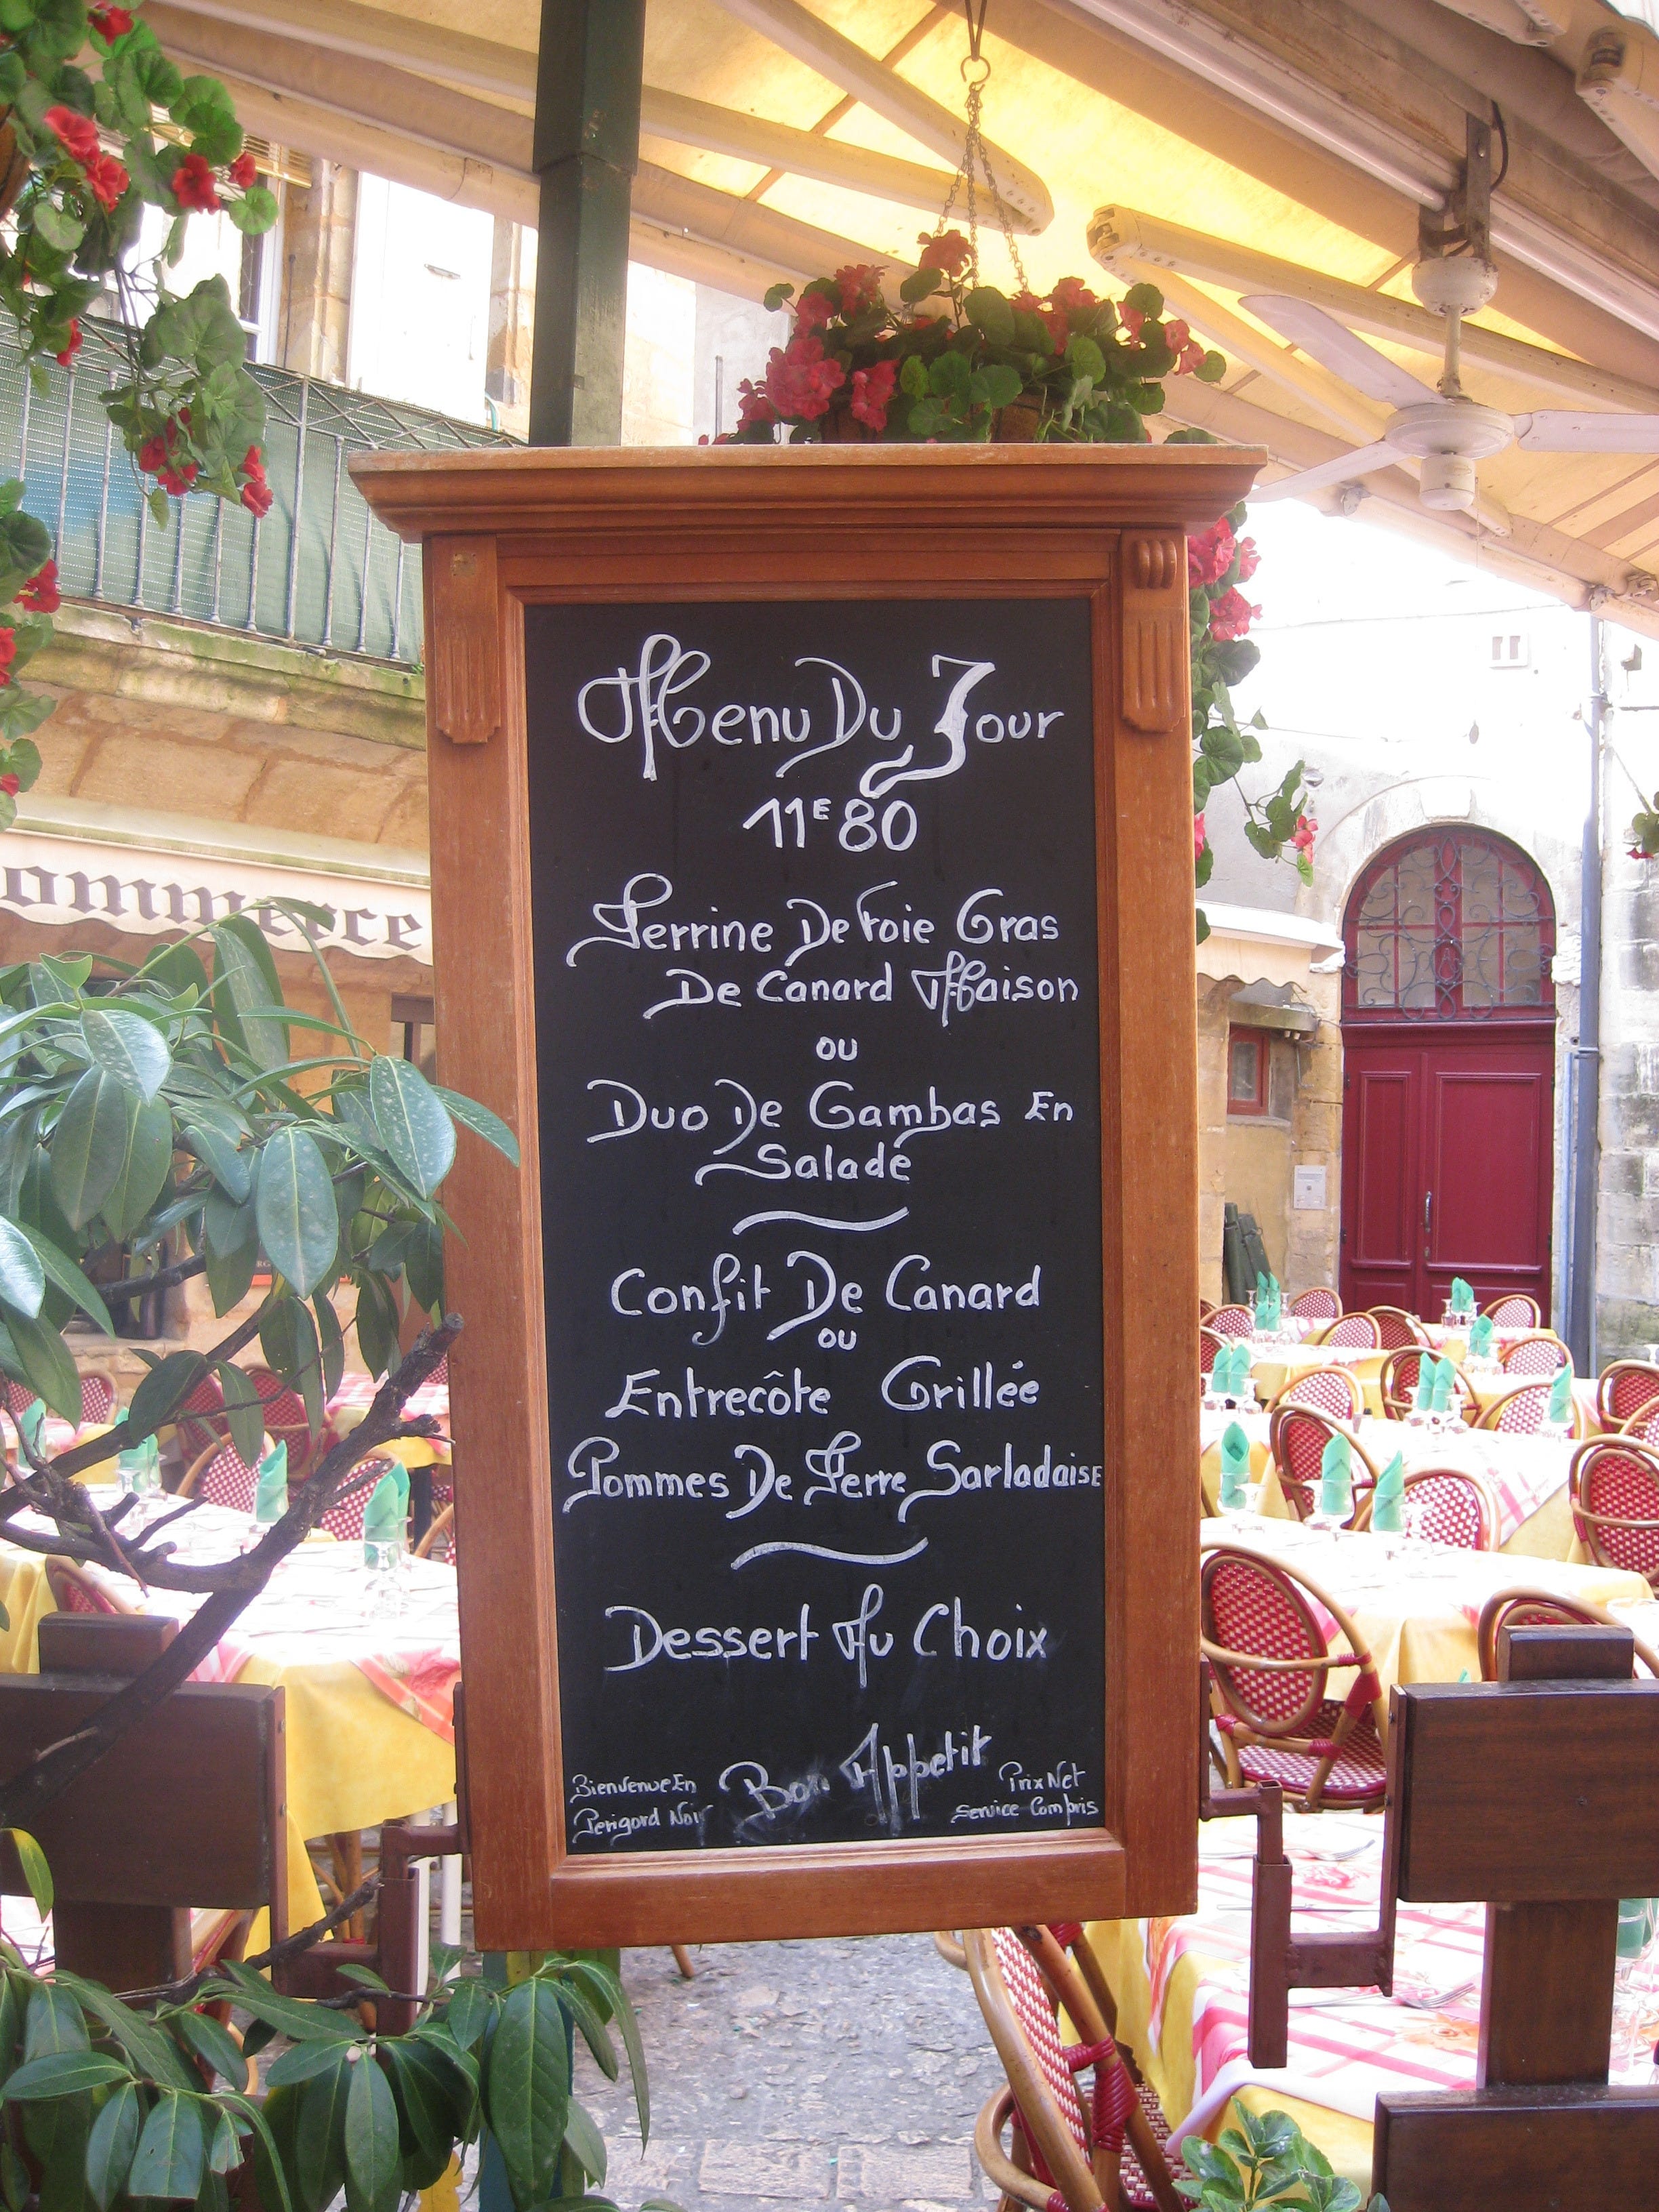 Menu Du Jour
11E80
Terrine De Foie Gras
De Canard Maison
ou
Duo De Gambas En
Salade
Confit De Canard
ou
Entrecôte Grillée
Pommes De Terre Sarladaise
Dessert Au Choix
Bon Appetit
Bienvenue En
Perigord Noir
Prix Net
Service Compris
ommerce